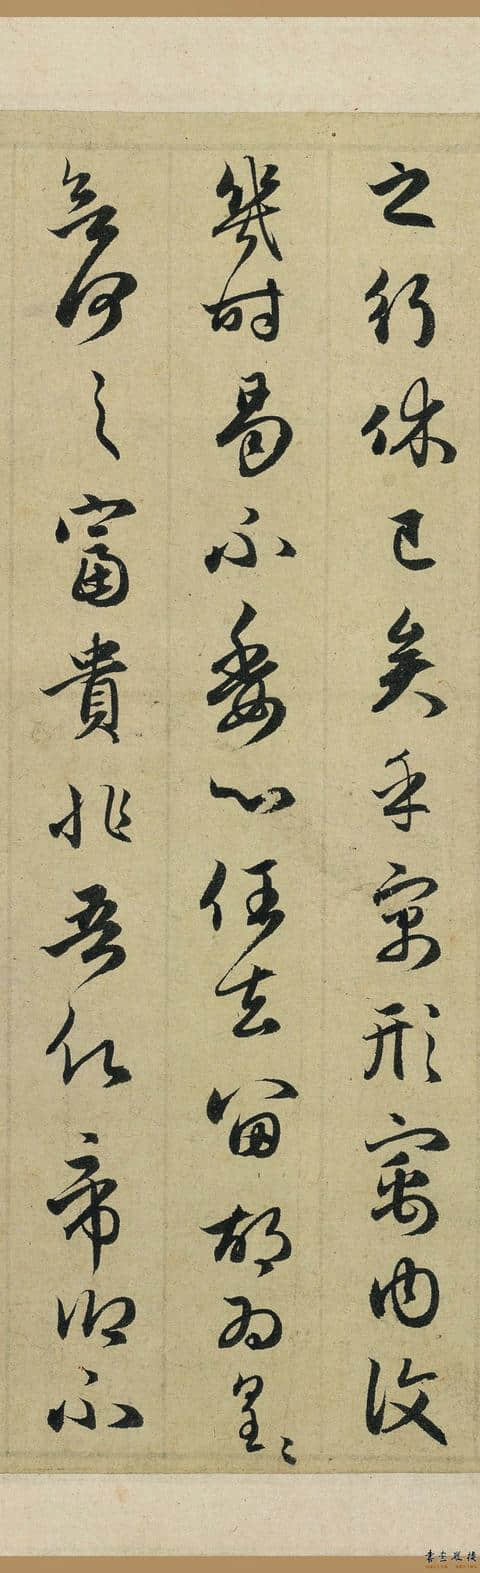 之行休已矣乎寓形宇内復
幾時曷不委心任去留胡為皇々
欲何之富貴非吾願帝鄉不